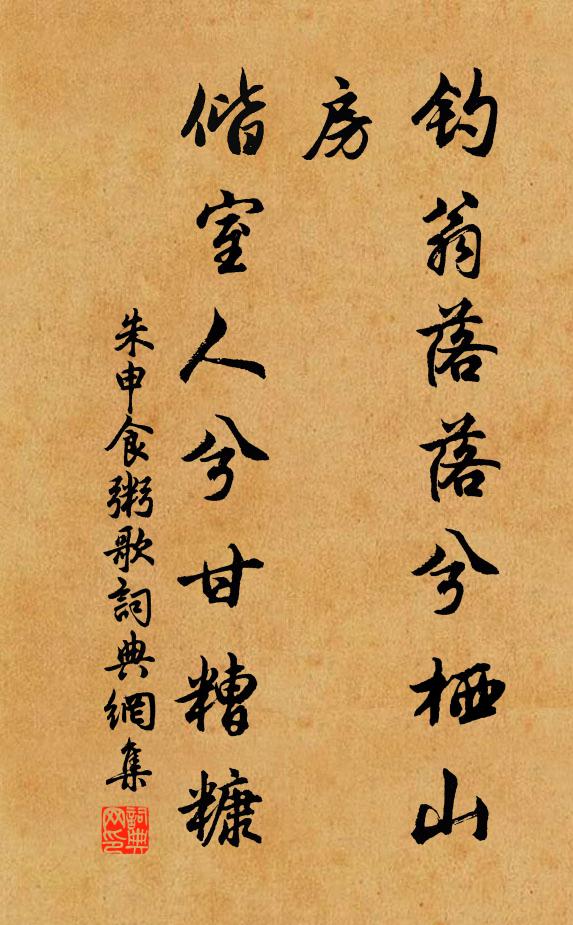 钓翁落落兮栖山
房
偕室人兮甘糟糠
朱申食粥歌詞典網集
詞典网印